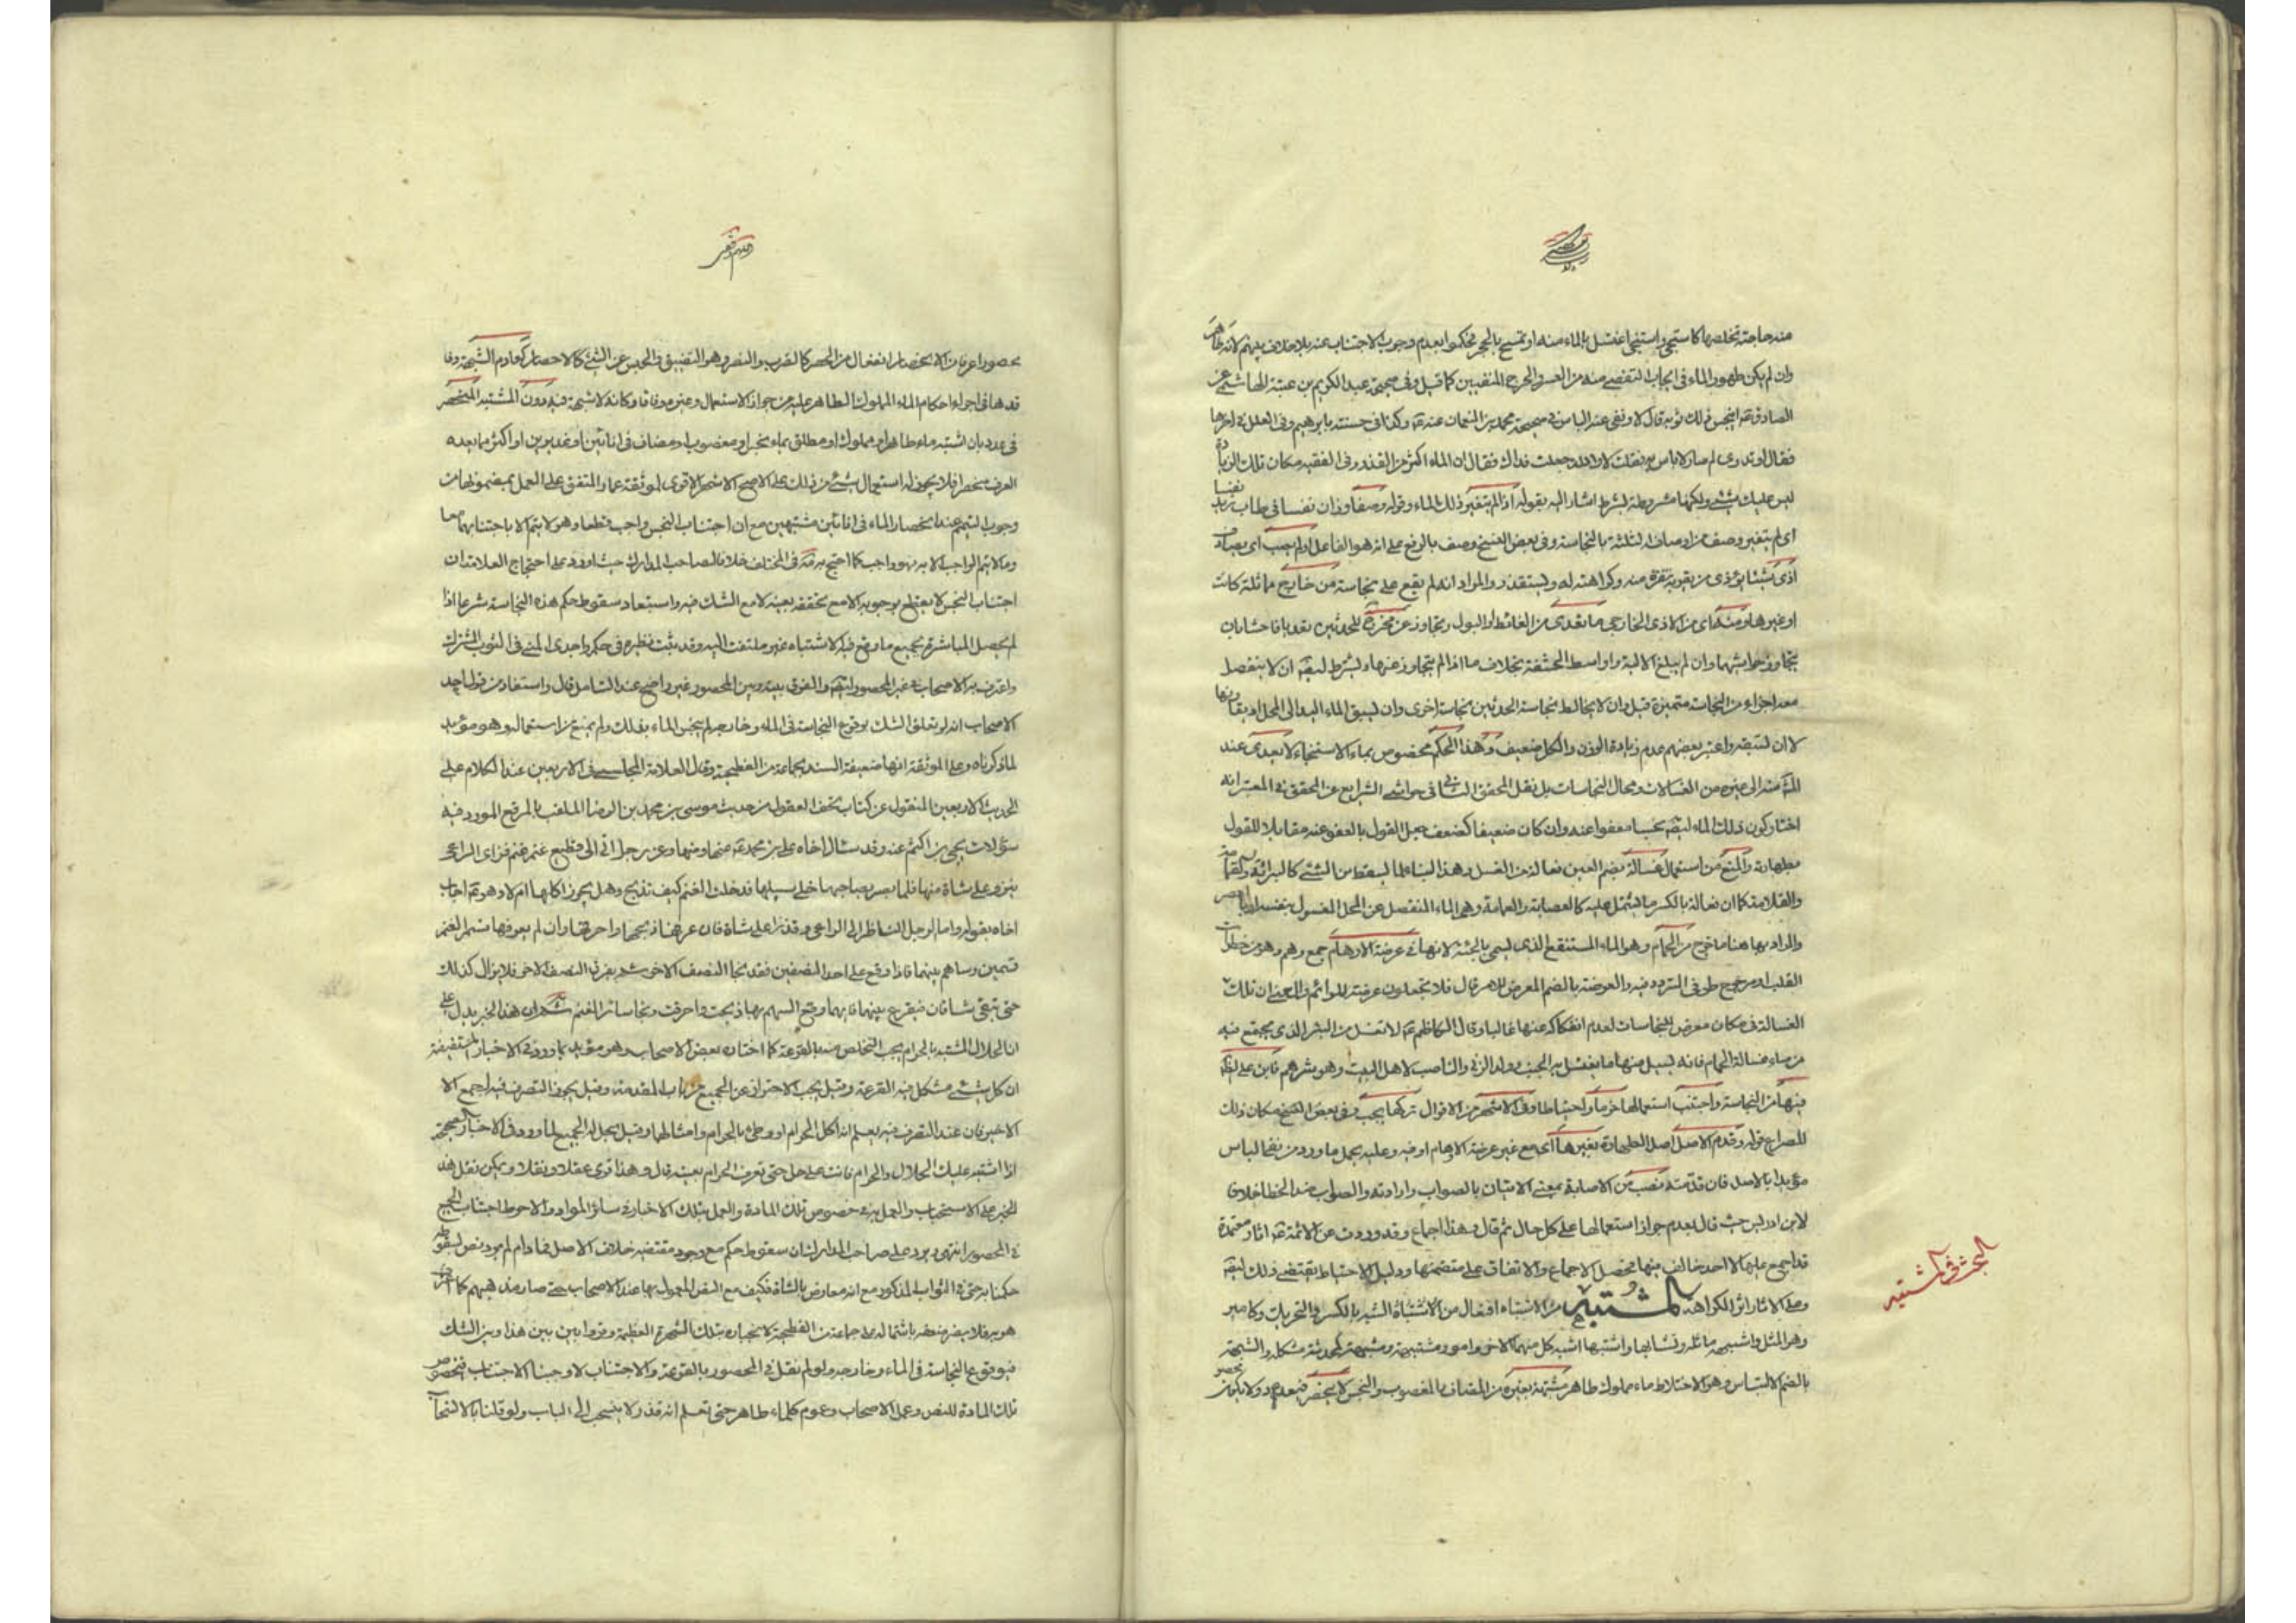 منه حاجته تخلصها كاستنجى واستنجى اغتسل بالماء منه او تمسح بالحجر فحكموا بعدم وجوب الاجتناب عنه بلا خلاف بينهم لانه طاهر
وان لم يكن طهور الماء في ايجاب التفصي منه من العسر والحرج المنفيين كما قيل وفي صحيحة عبد الكريم بن عتبة الهاشمي عن
الصادق عه اينجس ذلك ثوبه قال لا ونفى عنه الباس في صحيحة محمد بن النعمان عنه عه وكذا في حسنته بابرهيم وفي العلل في اخرها
فقال او تدري لم صار لا باس به فقلت لا والله جعلت فداك فقال ان الماء اكثر من القذر وفي الفقيه مكان تلك الزيادة
ليس عليك شيء ولكنها مشروطة بشرط اشار اليه بقوله اذا لم يتغير ذلك الماء وقوله وصفا وزان نفسا في طاب زيد نفسا
اي لم يتغير وصف من اوصافه الثلثة بالنجاسة وفي بعض النسخ وصف بالرفع على انه هو الفاعل ولم يصب اي يصادف
اذى شيئا يؤذي من يقربه بنفرة منه وكراهته له ويستقذر والمراد انه لم يقع على نجاسة من خارج مماثلة كانت
او غيرها ومنه اي من الاذى الخارجي ما تعدى من الغائط او البول وتجاوز عن مخرج للحدثين تعديا فاحشا بان
يتجاوز حواشيهما وان لم يبلغ الالية واواسط الحشفة بخلاف ما اذا لم يتجاوز عنها ويشترط ايضه ان لا ينفصل
معه اجزاء من النجاسة متميزة قيل وان لا يخالط نجاسة الحدثين نجاسة اخرى وان يسبق الماء اليد الى المحل او يقارنها
لا ان تسبقه واعتبر بعضهم عدم زيادة الوزن والكل ضعيف وهذا الحكم مخصوص بماء الاستنجاء لا يعدى عند
المشه منه الى غيره من الغسالات ومحال النجاسات بل نقل المحقق الثاني في حواشي الشرايع عن المحقق في المعتبر انه
اختار كون ذلك الماء ايضه نجسا معفوا عنه وان كان ضعيفا كضعف جعل القول بالعفو عنه مقابلا للقول
بطهارته والمنع من استعمال غسالة بضم الغين فعالة من الغسل وهذا البناء لما يسقط من الشيء كالبراية والقمامة
والقلامة كما ان فعالة بالكسر ما يشتمل عليه كالعصابة والعمامة وهي الماء المنفصل عن المحل المغسول بنفسه او بالعصر
والمراد بها هنا ما خرج من الحمام وهو الماء المستنقع الذي يسمى بالجئة لانها في عرضة الاوهام جمع وهم وهو من خطرات
القلب او مرجوح طرفي المتردد فيه والعرضة بالضم المعرض للامر قال فلا تجعلون عرضة للوائم والمعنى ان تلك
الغسالة في مكان معرض للنجاسات لعدم انفكاكه عنها غالبا وقال الكاظم عه لا تغتسل من البئر الذي يجتمع فيه
من ماء غسالة الحمام فانه يسيل منها ما يغتسل به الجنب وولد الزنى والناصب لاهل البيت وهو شرهم فابن على الظن
فيها من النجاسة واجتنب استعمالها حزما واحتياطا وفي الاشهر من الاقوال تركها يجب وفي بعض النسخ مكان ذلك
المصراع قوله وقدم الاصل اصل الطهارة بغيرها اي مع غير عرضة الاوهام او فيه وعليه يحمل ما ورد من نفي الباس
مؤيدا بالاصل فان قدمته تصب من الاصابة بمعنى الاتيان بالصواب وارادته والصواب ضد الخطا خلاف
لابن ادريس حيث قال بعدم جواز استعمالها على كل حال ثم قال وهذا اجماع وقد وردت عن الائمة عه اثار معتمدة
قد اجمع عليها لا احد خالف فيها فحصل الاجماع والاتفاق على متضمنها ودليل الاحتياط يقتضي ذلك ايضه
وعلى الاثار اثر الكراهة المشتبه من الاشتباه افتعال من الاشتباه الشبه بالكسر والتحريك وكامير
وهو المثل واشبهه ماثله وتشابها واشتبها اشبه كل منهما الاخر وامور مشتبهة ومشبهة كمعظمة مشكلة والشبهة
بالضم الالتباس وهو الاختلاط ماء مملوك طاهر مشتبه بغيره من المضاف والمغصوب والنجس لا ينحصر فيعد ولا يكون
البحث في المشتبه
محصورا عرفا من الانحصار انفعال من الحصر كالضرب والنصر وهو التضييق والحبس عن الشيء كالاحصار كعادم الشبهة وفا
قدها في اجراء احكام الماء المملوك الطاهر عليه من جواز الاستعمال وغيره وفاقا وكانه لا شبهة فيه دون المشتبه المنحصر
في عدد بان اشتبه ماء طاهر او مملوك او مطلق بماء نجس او مغصوب او مضاف في انائين او غديرين او اكثر مما يعده
العرف منحصرا فلا يجوز له استعمال شيء من ذلك على الاصح الاشهر الاقوى لموثقة عمار المتفق على العمل بمضمونها من
وجوب التيمم عند انحصار الماء في انائين مشتبهين مع ان اجتناب النجس واجب قطعا وهو لا يتم الا باجتنابهما معا
وما لا يتم الواجب الا به فهو واجب كما احتج به مه في المختلف خلافا لصاحب المدارك حيث اورد على احتجاج العلامة ان
اجتناب النجس لا يقطع بوجوبه الا مع تحققه بعينه لا مع الشك فيه واستبعاد سقوط حكم هذه النجاسة شرعا اذا
لم يحصل المباشرة بجميع ما وقع فيه الاشتباه غير ملتفت اليه وقد ثبت نظيره في حكم واجدي المني في الثوب المشترك
واعترف به الاصحاب في غير المحصور ايضه والفرق بينه وبين المحصور غير واضح عند التامل قال ويستفاد من قواعد
الاصحاب انه لو تعلق الشك بوقوع النجاسة في الماء وخارجه لم ينجس الماء بذلك ولم يمنع من استعماله وهو مؤيد
لما ذكرناه وعلى الموثقة انها ضعيفة السند بجماعة من الفطحية وقال العلامة المجلسي في الاربعين عند الكلام على
الحديث الاربعين المنقول عن كتاب تحف العقول من حديث موسى بن محمد بن الرضا الملقب بالمبرقع المورد فيه
سؤلات يحيى بن اكثم عنه وقد سئال اخاه علي بن محمد عه عنها ومنها وعن رجل اتى الى قطيع غنم فراى الراعي
ينزو على شاة منها فلما بصر بصاحبها خلى سبيلها فدخلت الغنم كيف تذبح وهل يجوز اكلها ام لا وهو عه اجاب
اخاه بقوله واما الرجل الناظر الى الراعي وقد نزا على شاة فان عرفها ذبحها واحرقها وان لم يعرفها قسم الغنم
قسمين وساهم بينهما فاذا وقع على احد النصفين فقد نجا النصف الاخر ثم يفرق النصف الاخر فلا يزال كذلك
حتى تبقى شاتان فيقرع بينهما فايهما وقع السهم بها ذبحت واحرقت ونجا سائر الغنم ثم ان هذا الخبر يدل على
ان الحلال المشتبه بالحرام يجب التخلص منه بالقرعة كما اختاره بعض الاصحاب وهو مؤيد بما ورد في الاخبار المستفيضة
ان كل شيء مشكل فيه القرعة وقيل يجب الاحتراز عن الجميع من باب المقدمة وقيل يجوز التصرف فيه اجمع الا
الاخير فان عند التصرف فيه يعلم انه اكل الحرام او وطئ بالحرام وامثالهما وقيل يحل له الجميع لما ورد في الاخبار الصحيحة
اذا اشتبه عليك الحلال والحرام فانت على حل حتى تعرف الحرام بعينه قال وهذا قوى عقلا ونقلا ويمكن نقل هذا
الخبر على الاستحباب والعمل به في خصوص تلك المادة والعمل بتلك الاخبار في سائر المواد والاحوط اجتناب الجميع
في المحصور انتهى ويرد على صاحب المدارك ان سقوط حكم مع وجود مقتضيه خلاف الاصل فما دام لم يرد نص لسقوطه
حكمنا به حتى في الثواب المذكور مع انه معارض بالشاة فكيف مع النص المعمول بها عند الاصحاب حتى صار مذهبهم كما
هو به فلا يضر ضعفه باشتماله على جماعة من الفطحية لانجباره بتلك الشهرة العظيمة وفرقا بين بين هذا وبين الشك
في وقوع النجاسة في الماء وخارجه ولو لم نقل في المحصور بالقرعة والاجتناب لاوجبنا الاجتناب فيخص
تلك المادة للنص وعمل الاصحاب وعموم كلماء طاهر حتى تعلم انه قذر لا ينسحب الى الباب ولو قلنا بالانسحاب